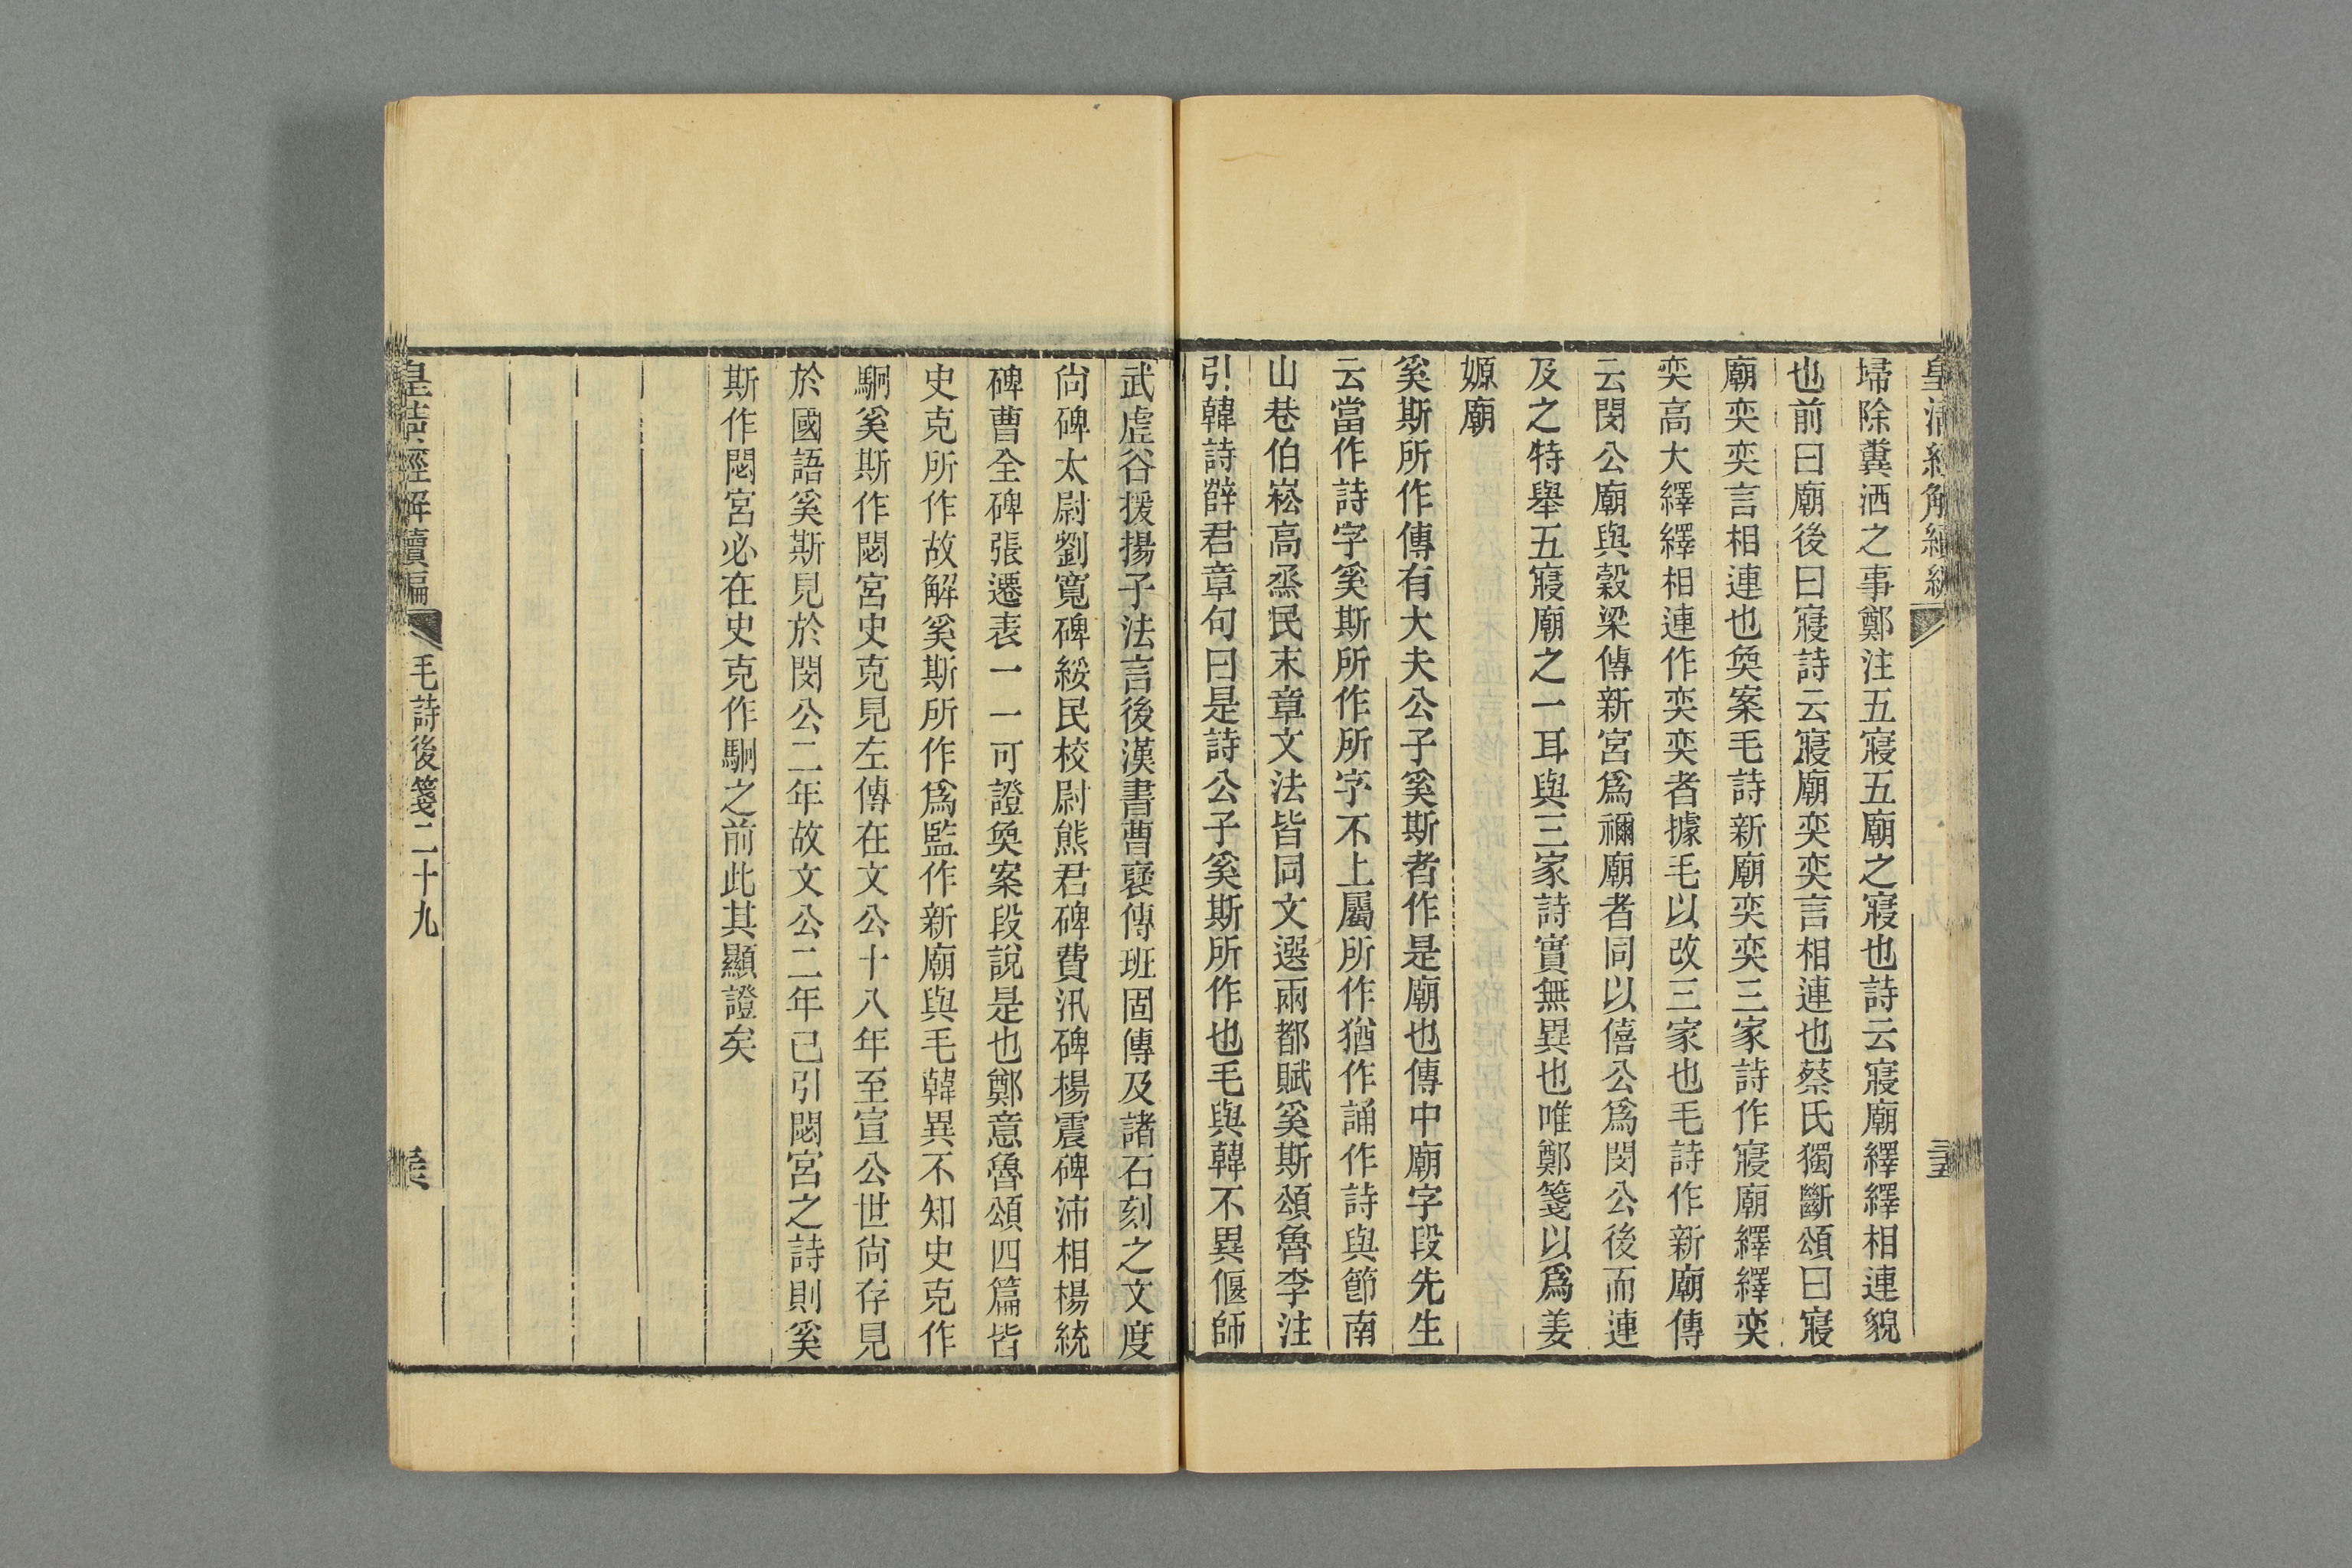 埽除糞洒之事鄭注五寢五廟之寢也詩云寢廟繹繹相連貌
也前曰廟後曰寢詩云寢廟奕奕言相連也蔡氏獨斷頌曰寢
廟奕奕言相連也奐案毛詩新廟奕奕三家詩作寢廟繹繹奕
奕高大繹繹相連作奕奕者據毛以改三家也毛詩作新廟傳
云閔公廟與穀梁傳新宮爲禰廟者同以僖公爲閔公後而連
及之特舉五寢廟之一耳與三家詩實無異也唯鄭箋以爲姜
嫄廟
奚斯所作傳有大夫公子奚斯者作是廟也傳中廟字段先生
云當作詩字奚斯所作所字不上屬所作猶作誦作詩與節南
山巷伯崧高烝民末章文法皆同文選兩都賦奚斯頌魯李注
引韓詩薛君章句曰是詩公子奚斯所作也毛與韓不異偃師
武虛谷援揚子法言後漢書曹襃傳班固傳及諸石刻之文度
尙碑太尉劉寬碑綏民校尉熊君碑費汎碑楊震碑沛相楊統
碑曹全碑張遷表一一可證奐案段說是也鄭意魯頌四篇皆
史克所作故解奚斯所作爲監作新廟與毛韓異不知史克作
駉奚斯作閟宮史克見左傳在文公十八年至宣公世尙存見
於國語奚斯見於閔公二年故文公二年已引閟宮之詩則奚
斯作閟宮必在史克作駉之前此其顯證矣
皇淸經解續編
毛詩後箋二十九